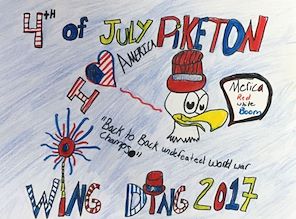 4TH of JULY PIKETON
I ♥ AMERICA
Merica
Red
white
Boom
"Back to Back undefeated World war
Champs"
WING DING 2017